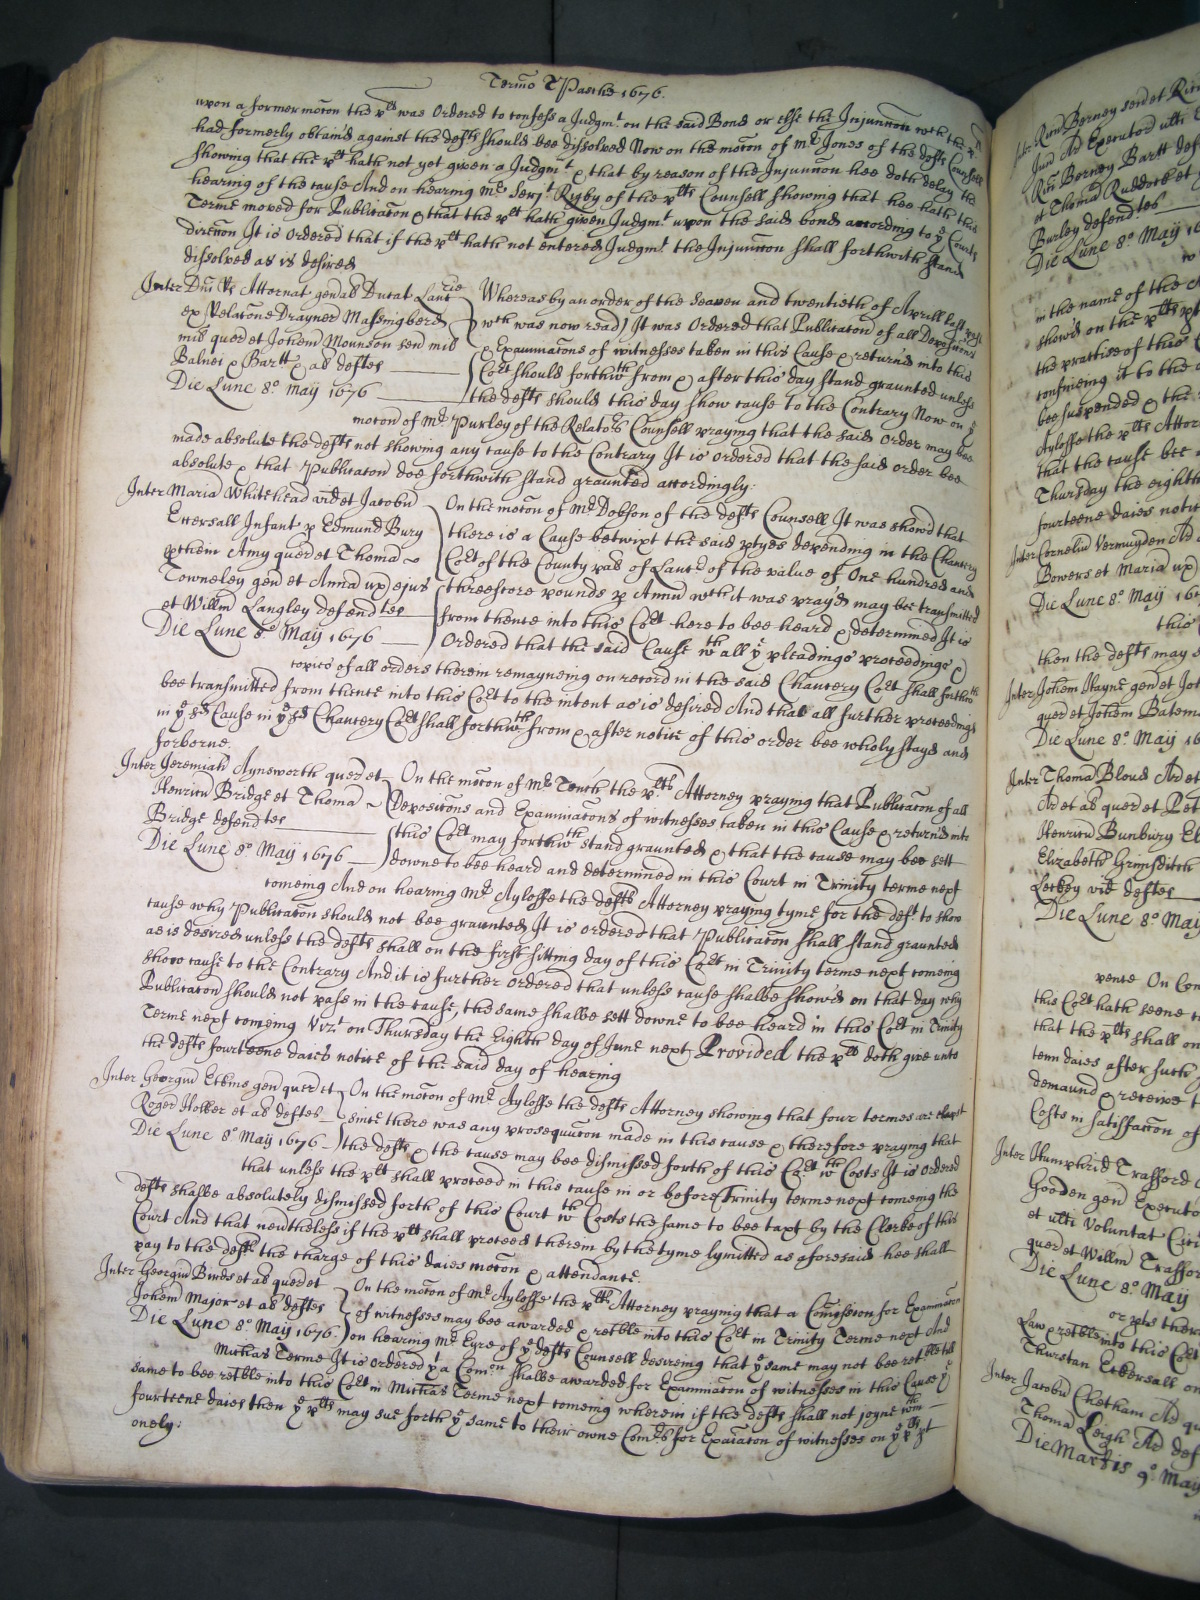 Termo Paschē 1676.
upon a former moc̄on the plt was Ordered to confess a Judgmt on the said Bond or else the Injuncc̄on wch the
had formerly obtained against the defts should bee dissolved Now on the moc̄on of Mr Jones of the defts Counsell
showing that the plt hath not yet given a Judgmt & that by reason of the Injuncc̄on hee doth delay the
hearing of the cause And on hearing Mr Serjt Rigby of the plts Counsell showing that hee hath this
Terme moved for Publicac̄on & that the plt hath given Judgmt upon the said bond according to ye Courts
direcc̄on It is Ordered that if the plt hath not entered Judgmt the Injuncc̄on shall forthwith stand
dissolved as is desired
Inter Dn̄i Rs Attornat gen̄al Ducat Lancrie
ex Relac̄one Drayner Massingberd
mil quer et Joh̄em Mounson sen mil
Balnei & Bartt & al deftes
Die Lune 8o May 1676
Whereas by an order of the seaven and twentieth of Aprill last past
wch was now read) It was Ordered that Publicac̄on of all Deposic̄ons
& Examinac̄ons of witnesses taken in this Cause & returned into this
Cort should forthwth from & after this day stand graunted unless
the defts should this day show cause to the Contrary Now on ye
moc̄on of Mr Purley of the Relators Counsell praying that the said Order may bee
made absolute the defts not showing any cause to the Contrary It is ordered that the said order bee
absolute & that Publicac̄on doe forthwith stand graunted accordingly.
Inter Maria Whitehead vid et Jacobū
Eccersall Infant p Edmund Bury
pchem Amy quer et Thoma
Towneley gen̄ et Anna ux ejus
et Willm̄ Langley defendtes
Die Lune 8o May 1676
On the moc̄on of Mr Dobson of the defts Counsell It was showd that
there is a Cause betwixt the said ptyes depending in the Chancery
Cort of the County pal of Lancr of the value of One hundred and
threescore pounds p Annū wch it was prayed may bee transmitted
from thence into this Cort here to bee heard & determined It is
Ordered that the said Cause wth all ye pleadings proceedings &
copies of all orders therein remayneing on record in the said Chancery Cort shall forthwth
bee transmitted from thence into this Cort to the intent as is desired And that all further proceedings
in ye sd Cause in ye sd Chancery Cort shall forthwth from & after notice of this order bee wholy stayd and
forborne.
Inter Jeremiah Aynsworth quer et
Henricū Bridge et Thoma
Bridge defendtes
Die Lune 8o May 1676
On the moc̄on of Mr the plts Attorney praying that Publicac̄on of all
Deposic̄ons and Examinac̄ons of witnesses taken in this Cause & returned into
this Cort may forthwth stand graunted & that the cause may bee sett
downe to bee heard and determined in this Court in Trinity terme next
comeing And on hearing Mr Ayloffe the defts Attorney praying tyme for the deft to show
cause why Publicac̄on should not bee graunted It is ordered that Publicac̄on shall stand graunted
as is desired unless the defts shall on the first sitting day of this Cort in Trinity terme next comeing
show cause to the Contrary And it is further ordered that unless cause shalbe showed on that day why
Publicac̄on should not pass in the cause, the same shalbe sett downe to bee heard in this Cort in Trinity
Terme next comeing Vizt on Thursday the Eighth day of June next Provided the plt doth give unto
the defts fourteene daies notice of the said day of hearing
Inter Georgiū Etkins gen̄ quer et
Roger et al deftes
Die Lune 8o May 1676
On the moc̄on of Mr Ayloffe the defts Attorney showing that four termes are elapst
since there was any prosequuc̄on made in this cause & therefore praying that
the defts & the cause may bee dismissed forth of this Cort wth Costs It is Ordered
that unless the plt shall proceed in this cause in or before Trinity terme next comeing the
defts shalbe absolutely dismissed forth of this Court wth Costs the same to bee taxt by the Clerke of this
Court And that neverthelesse if the plt shall proceed therein by the tyme lymitted as aforesaid hee shall
pay to the defts the charge of this daies moc̄on & attendance.
Inter Georgiū Binds et al quer et
Joh̄em Major et al deftes
Die Lune 8o May 1676
On the moc̄on of Mr Ayloffe the plts Attorney praying that a Com̄ission for Examinac̄on
of witnesses may bee awarded & retble into this Cort in Trinity Terme next And
on hearing Mr Eyre of ye defts Counsell desireing that ye same may not bee retble till
Micħas Terme It is ordered yt a Comon shalbe awarded for Examinac̄on of witnesses in this Cause ye
same to bee retble into this Cort in Micħas Terme next comeing wherein if the defts shall not joyne wthin
fourteene daies then ye plts may sue forth ye same to their owne Comrs for Exaīac̄on of witnesses on ye plts pt
onely.
Inter Ricūm Berney sen et Ricū
Jun Ar Executor ulti
Ricū Berney Bartt def
et Thoma Ruddock et
Burley defendtes
Die Lune 8o May 16
in the name of the
showd on the plts pt
the practise of this
confineing it to the
bee suspended & the
Ayloffe the plts Attor
that the cause bee
Thursday the eighth
fourteene daies notic
Inter Corneliū Vermuyden Ar
Bowers et Maria ux
Die Lune 8o May 167
this
then the defts may
Inter Joh̄em Hayne gen̄ et Jo
quer et Joh̄em Batem
Die Lune 8o May 16
Inter Thoma Bloud Ar et
Ar et al quer et Pet
Henricū Bunbury
Elizabeth Grimsditch
Leckey vid deftes
Die Lune 8o May
pente On Con
this Cort hath seene
that the plts shall on
tenn daies after such
demaund & receive
Costs in satisfacc̄on of
Inter Humphrid Trafford
Gooden gen̄ Executo
et ulti Voluntat
quer et Willm̄ Traffor
Die Lune 8o May
or plts there
Law & retble into this Cort
Thurstan Eckersall on
Inter Jacobū Chetham Ar qu
Thoma Leigh Ar def
Die Martis 9o May